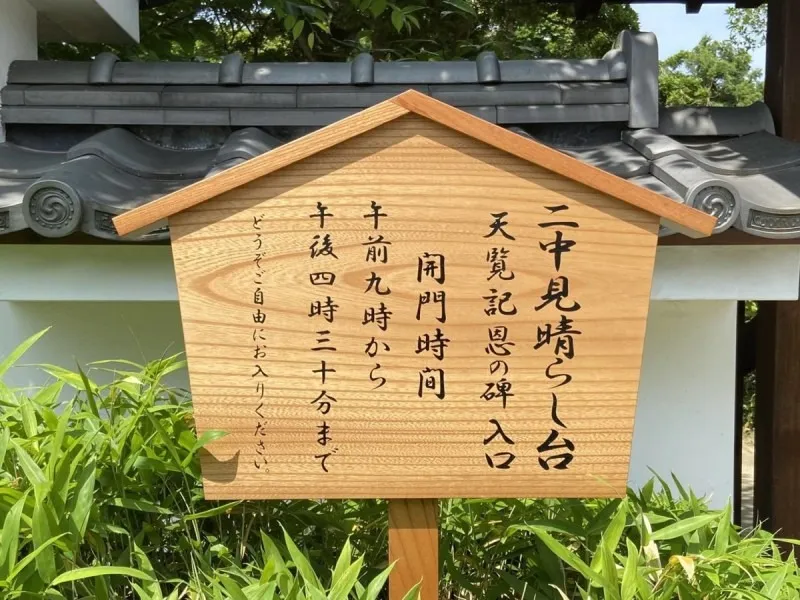 二中見晴らし台
天覧記恩の碑 入口
開門時間
午前九時から
午後四時三十分まで
どうぞご自由にお入りください。